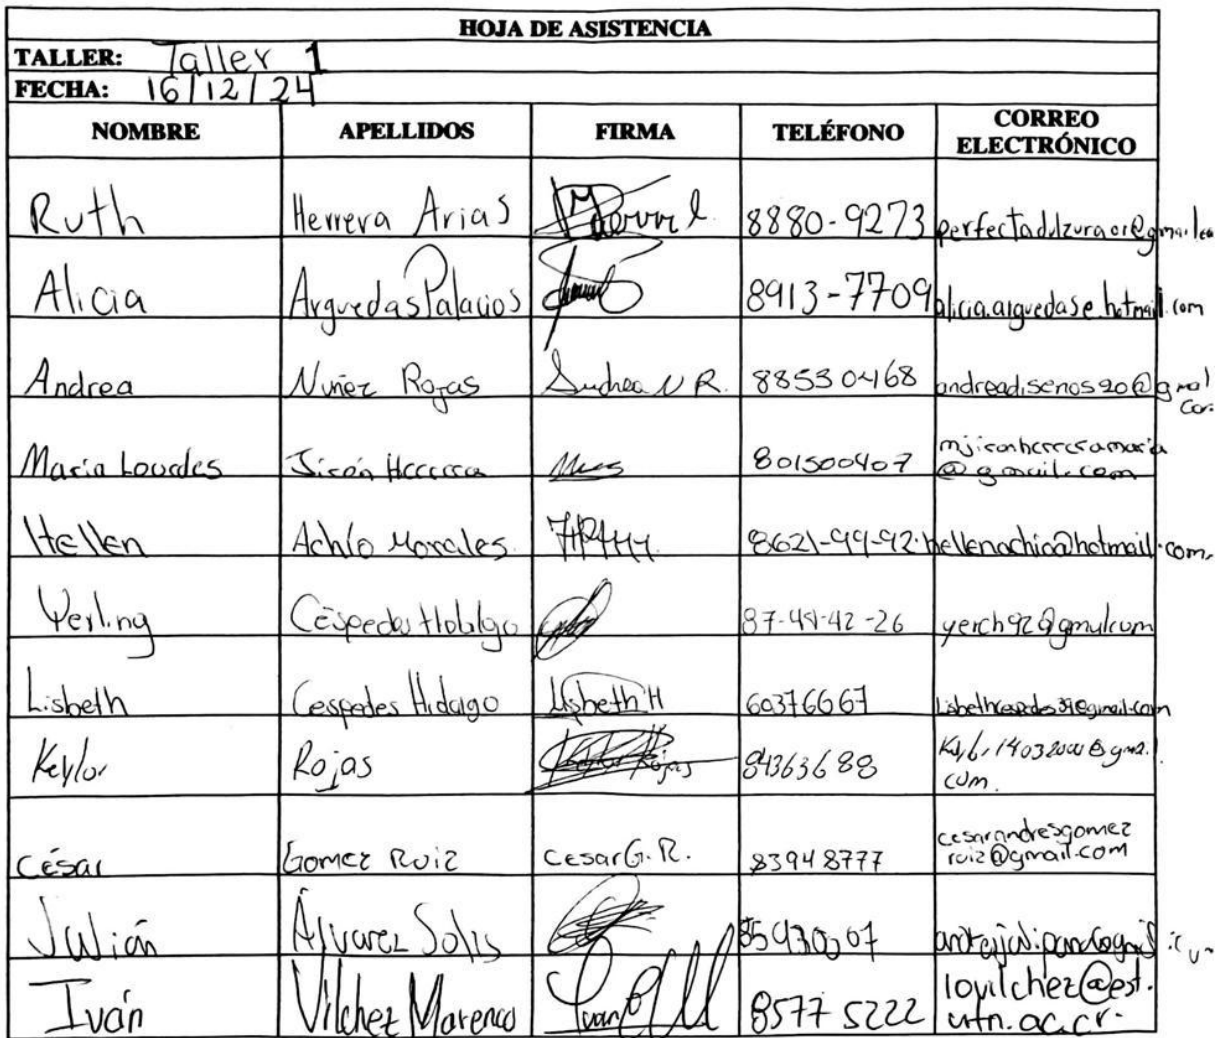 HOJA DE ASISTENCIA
TALLER: Taller 1
FECHA: 16/12/24
NOMBRE APELLIDOS FIRMA TELÉFONO CORREO ELECTRÓNICO
Ruth Herrera Arias 8880-9273
Alicia Arguedas Palacios 8913-7709 alicia.arguedase.hotmail.com
Andrea Nuñez Rojas Andrea N R. 88530468 andreadisenos20@gmal
com
Maria Lourdes Jirón Herrera 801500407 mjironherreramaria
@gmail.com
Hellen Achío Morales 8621-99-92 hellenachio@hotmail.com
Yerling Céspedes Hidalgo 87-49-42-26 yerch92@gmulcom
Lisbeth Cespedes Hidalgo Lisbeth H 60376667 Lisbethcespedes39@gmail.com
Keylor Rojas Rojas 84363688
com.
César Gomez Ruiz Cesar G. R. 83948777 cesarandresgomez
ruiz@gmail.com
Julián Álvarez Solís
Iván Vílchez Marenco Ivan 8577 5222 iovilchez@est.
utn.ac.cr.